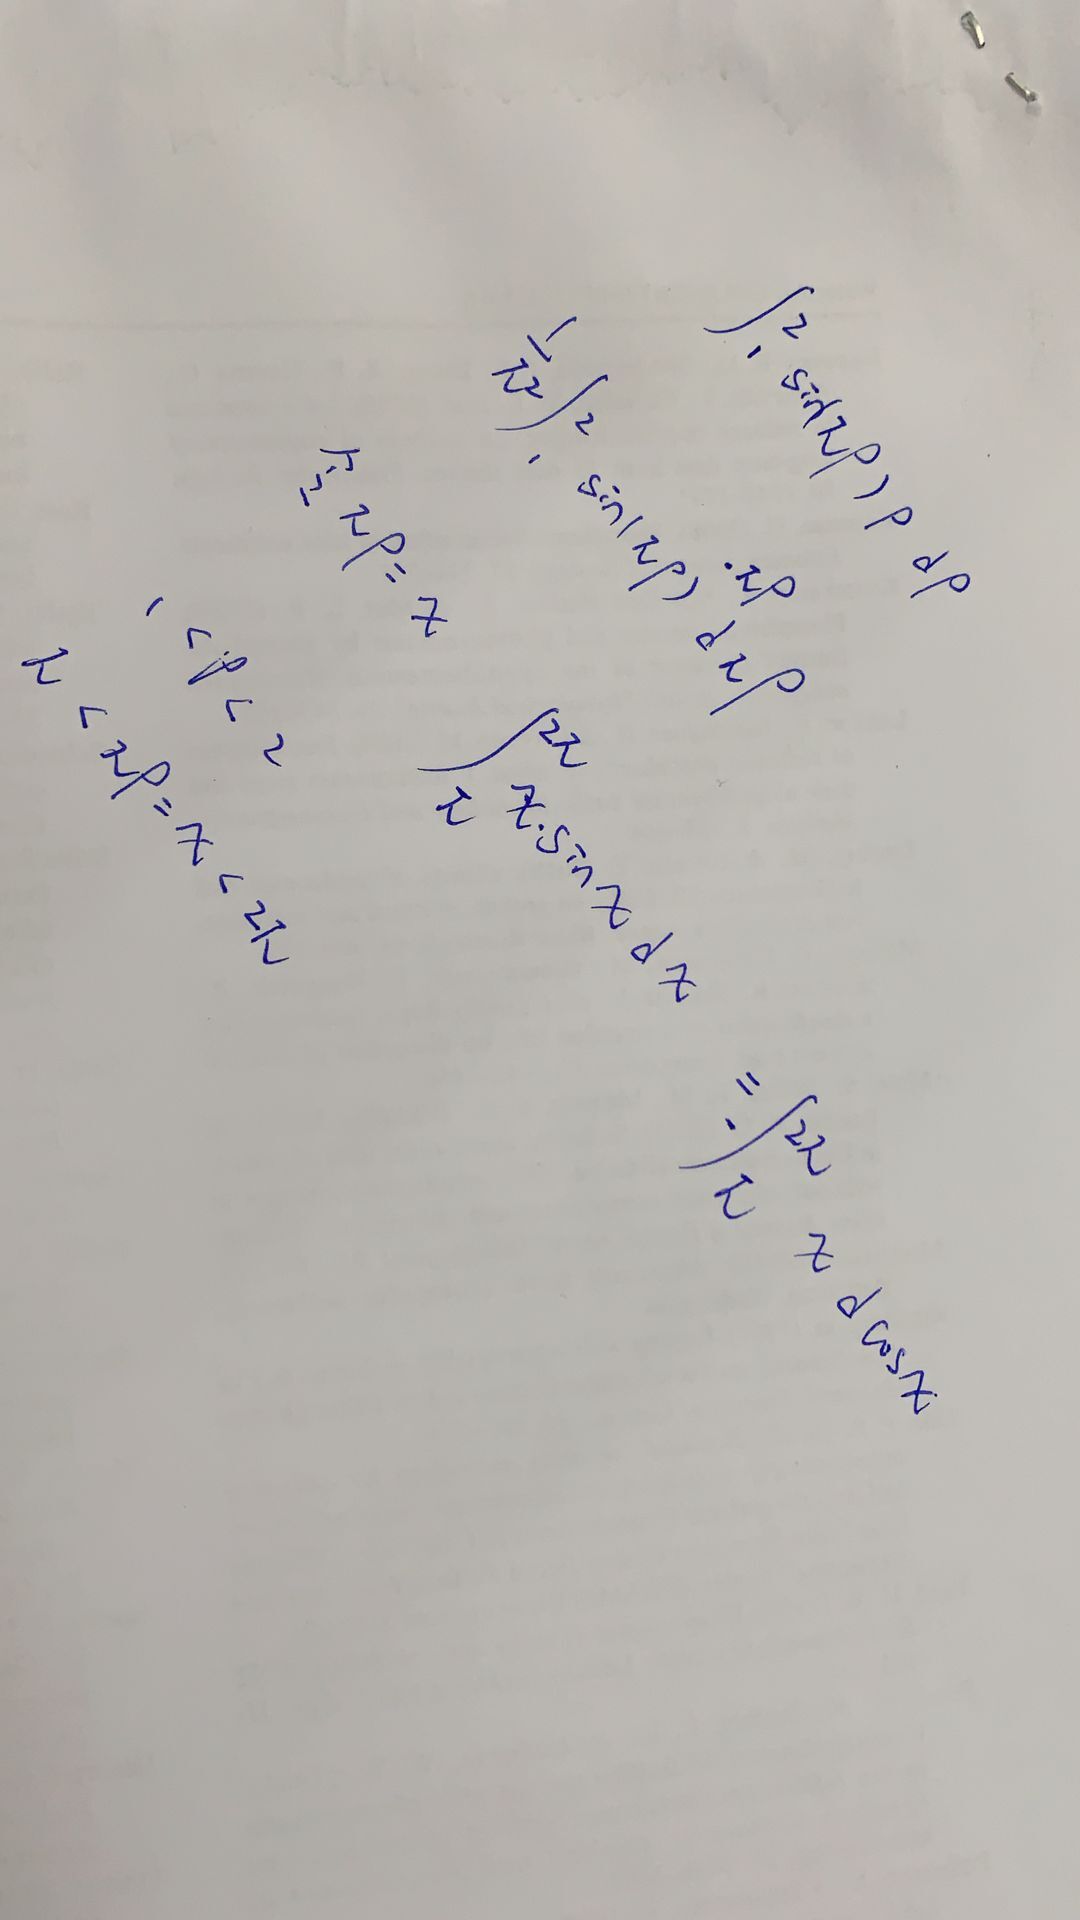 ∫₁² sin(πρ) ρ dρ
1/π² ∫₁² sin(πρ) · πρ dπρ
令 πρ = z
1 < ρ < 2
π < πρ = z < 2π
∫_π^{2π} z · sin z dz
= - ∫_π^{2π} z d cos z